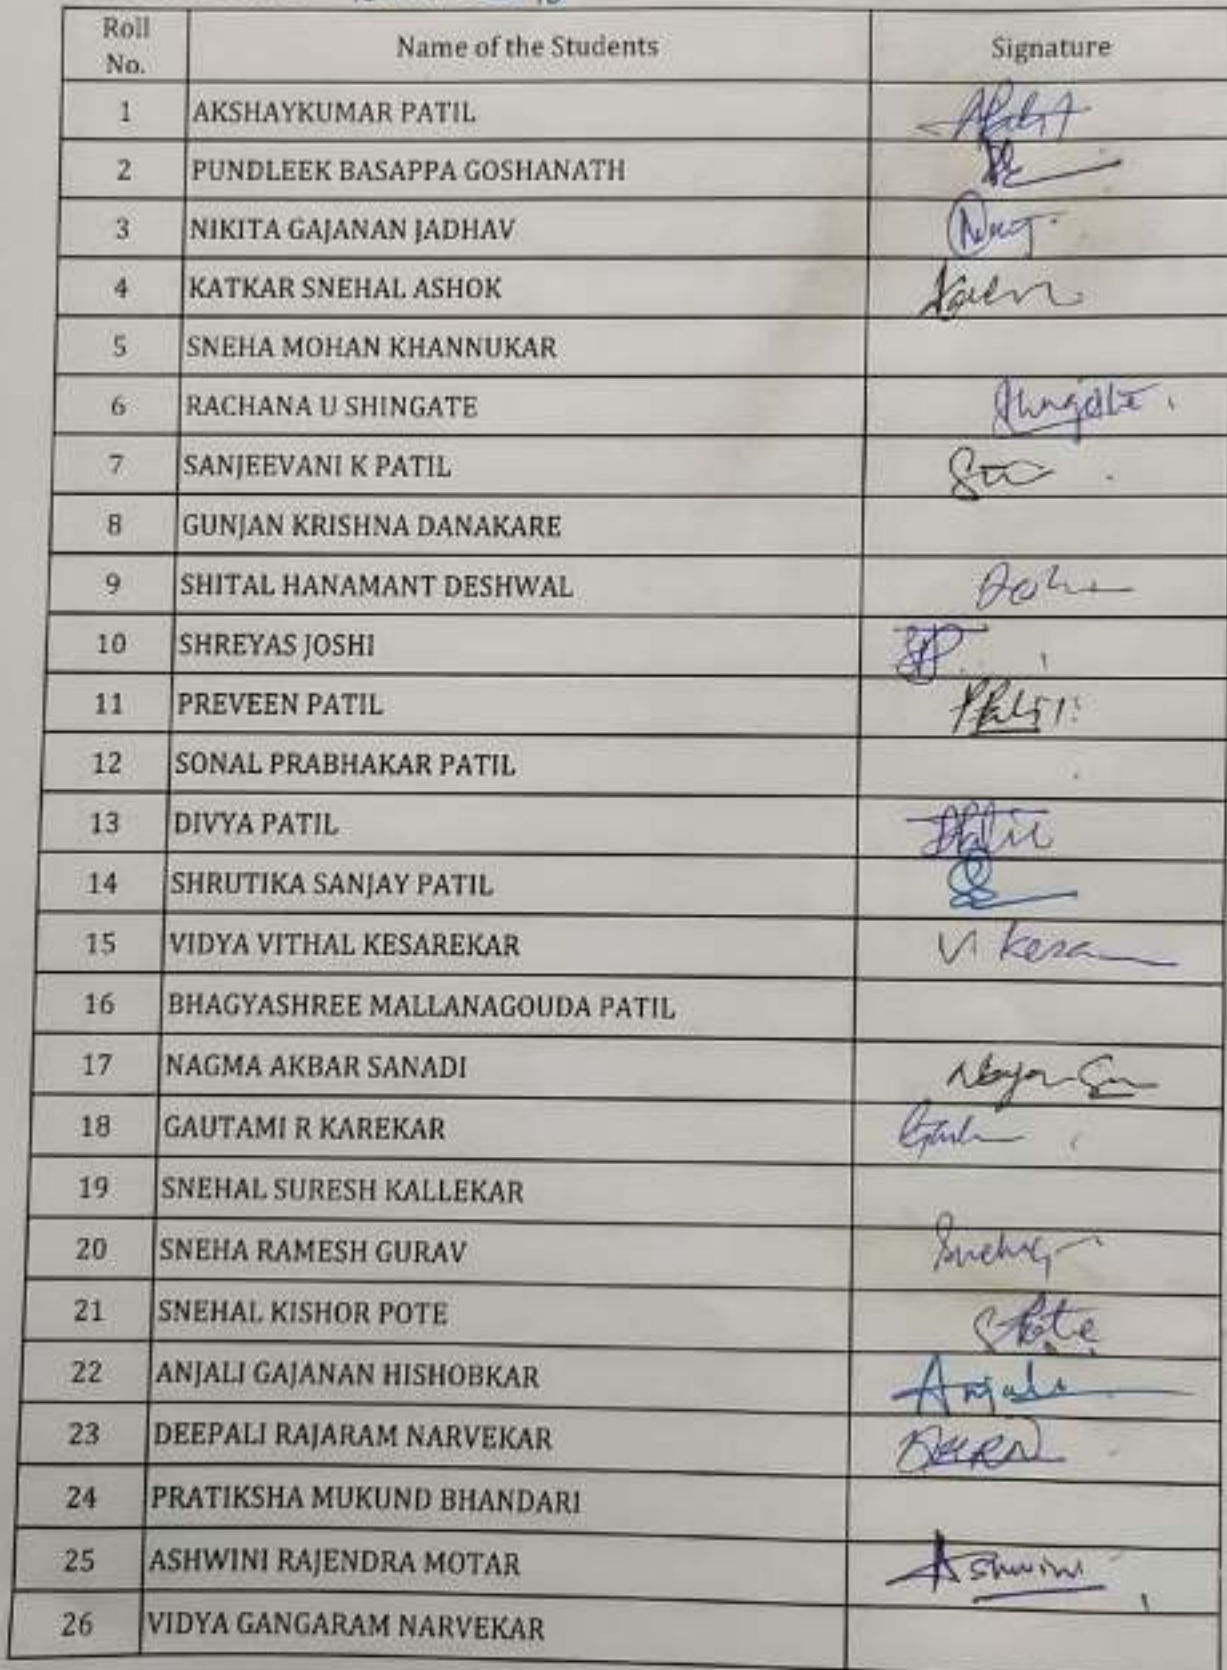 Roll No. Name of the Students Signature
1 AKSHAYKUMAR PATIL
2 PUNDLEEK BASAPPA GOSHANATH
3 NIKITA GAJANAN JADHAV
4 KATKAR SNEHAL ASHOK
5 SNEHA MOHAN KHANNUKAR
6 RACHANA U SHINGATE
7 SANJEEVANI K PATIL
8 GUNJAN KRISHNA DANAKARE
9 SHITAL HANAMANT DESHWAL
10 SHREYAS JOSHI
11 PREVEEN PATIL
12 SONAL PRABHAKAR PATIL
13 DIVYA PATIL
14 SHRUTIKA SANJAY PATIL
15 VIDYA VITHAL KESAREKAR
16 BHAGYASHREE MALLANAGOUDA PATIL
17 NAGMA AKBAR SANADI
18 GAUTAMI R KAREKAR
19 SNEHAL SURESH KALLEKAR
20 SNEHA RAMESH GURAV
21 SNEHAL KISHOR POTE
22 ANJALI GAJANAN HISHOBKAR
23 DEEPALI RAJARAM NARVEKAR
24 PRATIKSHA MUKUND BHANDARI
25 ASHWINI RAJENDRA MOTAR Ashwini
26 VIDYA GANGARAM NARVEKAR